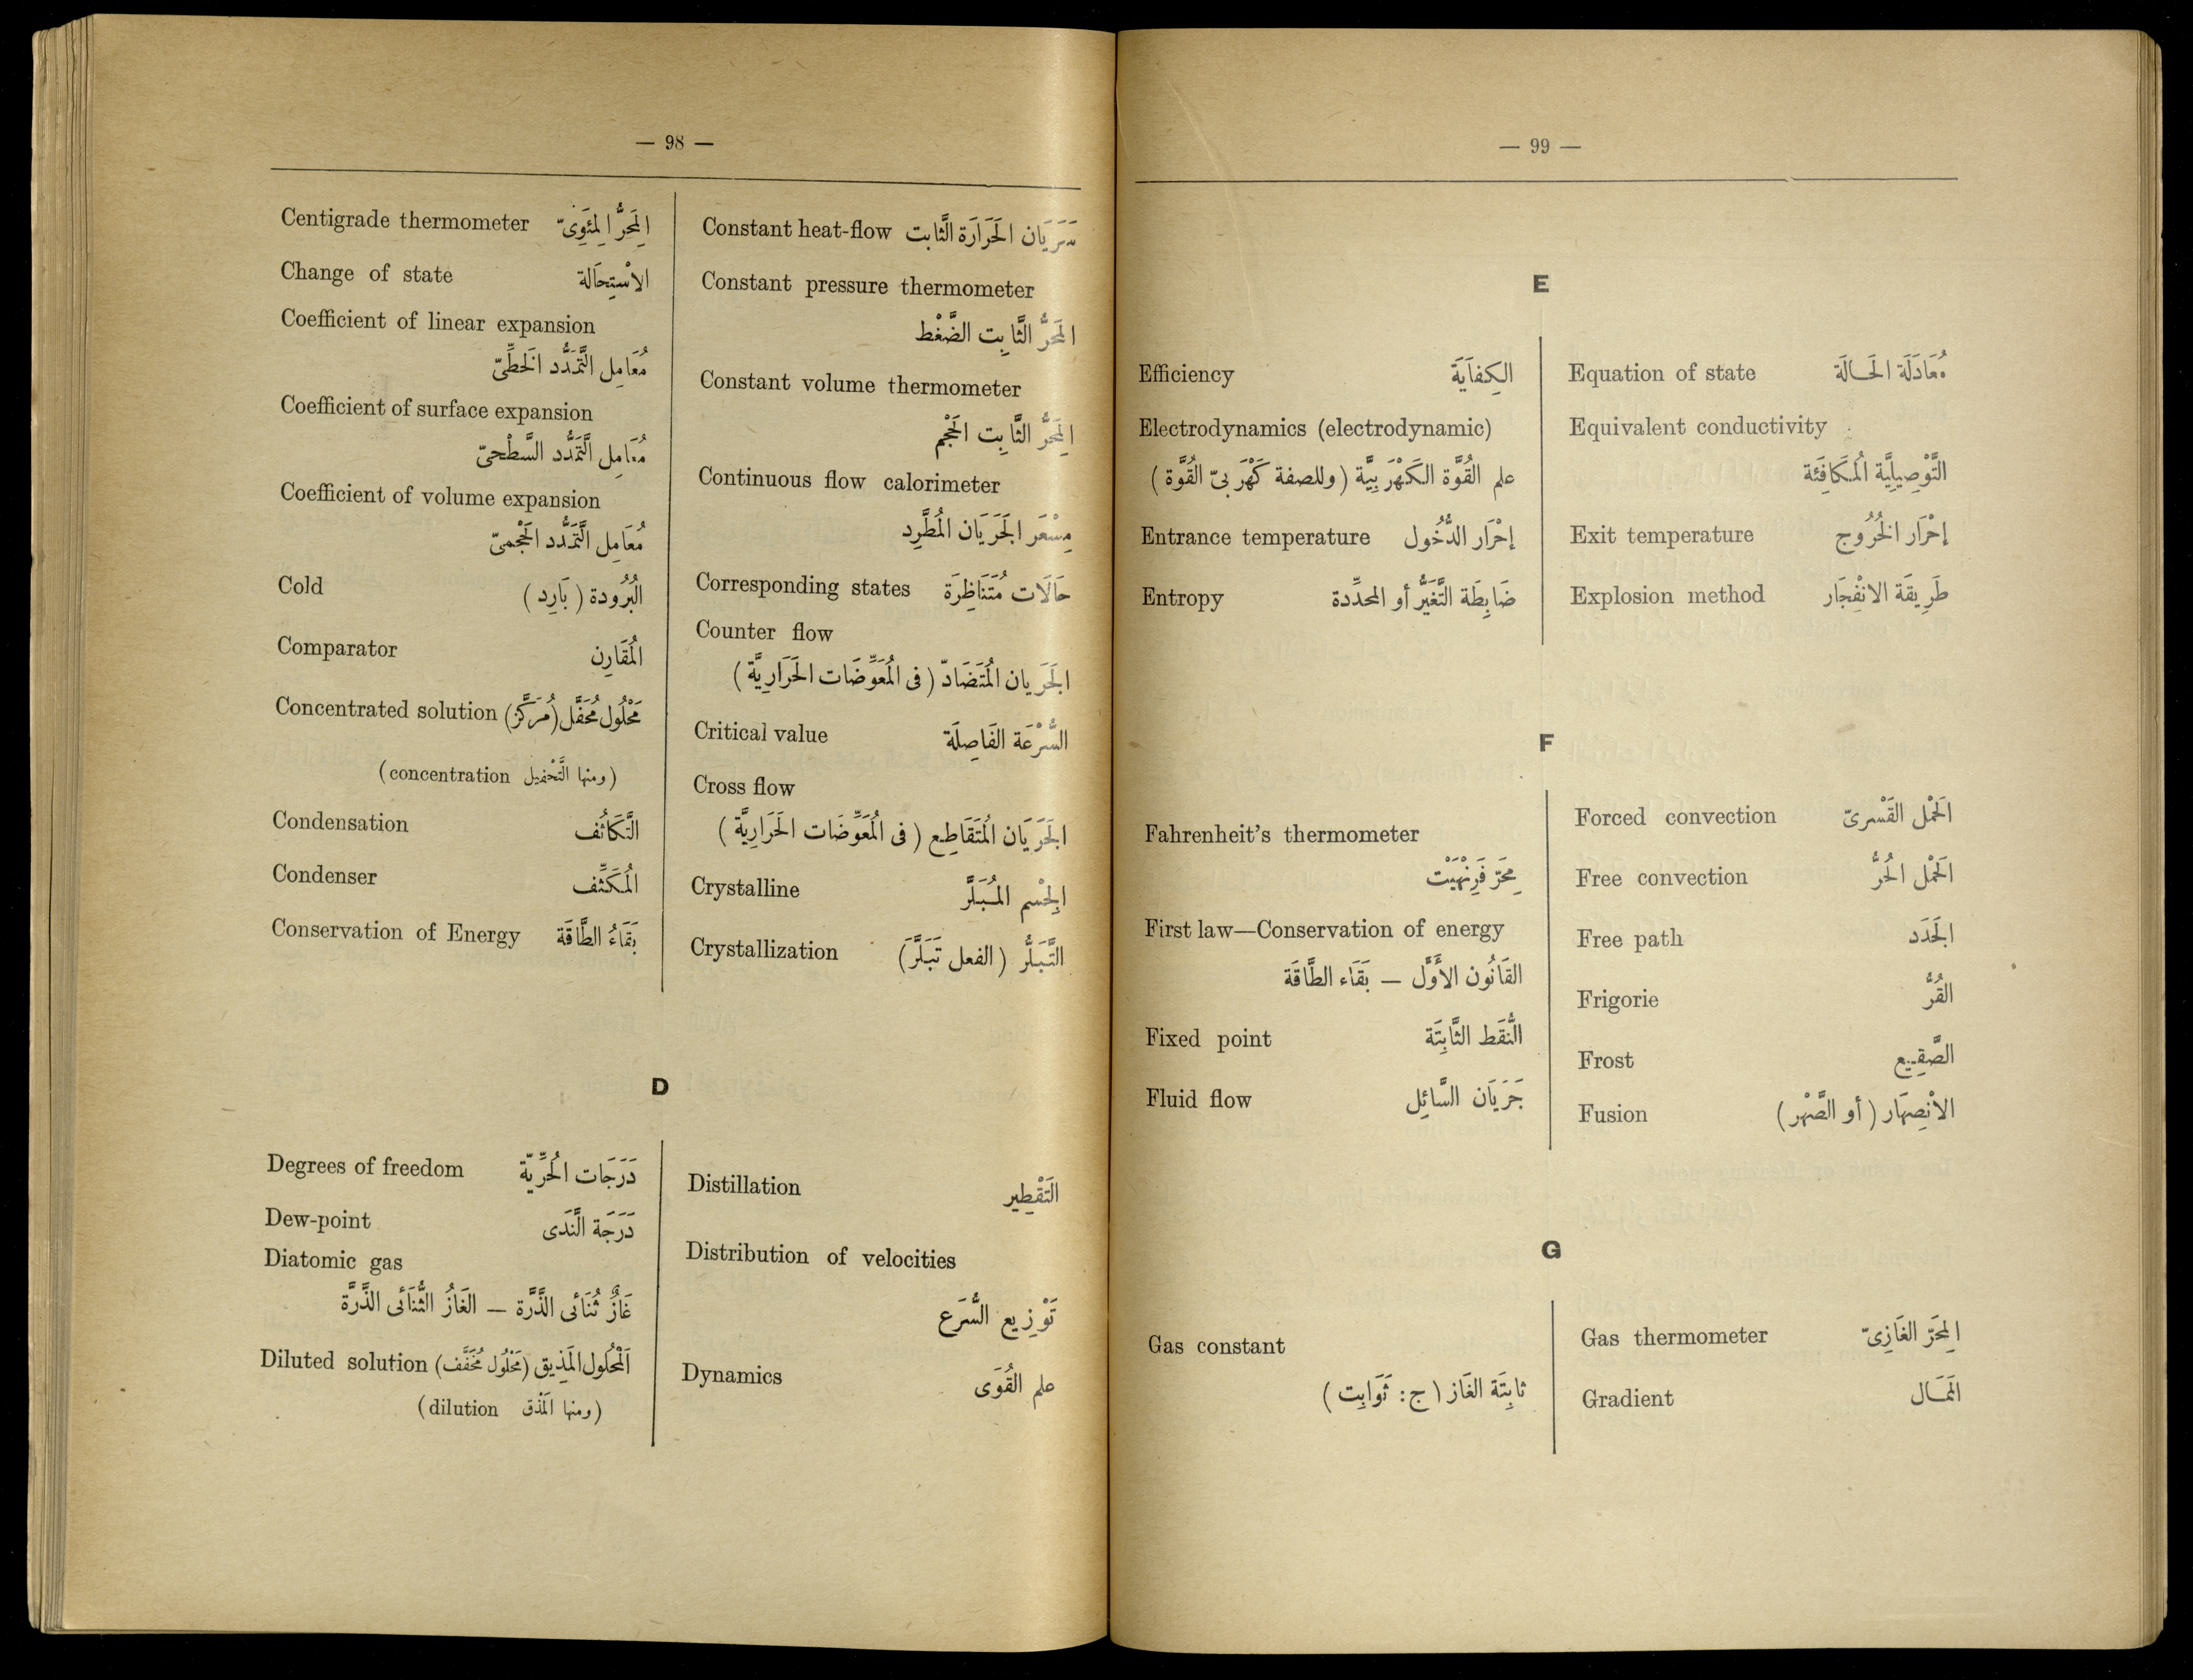 — 98 —
Centigrade thermometer المِحَرُّ المِئَوِىّ
Change of state الاسْتِحَالة
Coefficient of linear expansion
مُعَامِل التَّمَدُّد الخَطِّىّ
Coefficient of surface expansion
مُعَامِل التَّمَدُّد السَّطْحىّ
Coefficient of volume expansion
مُعَامِل التَّمَدُّد الحَجْمىّ
Cold البُرُودة ( بَارِد )
Comparator المُقَارِن
Concentrated solution مَحْلُول مُحَفَّل (مُرَكَّز)
(ومنها التَّحْفيل concentration)
Condensation التَّكَاثُف
Condenser المُكَثِّف
Conservation of Energy بَقَاءُ الطَّاقَة
Constant heat-flow سَرَيَان الحَرَارَة الثَّابت
Constant pressure thermometer
المِحَرُّ الثَّابِت الضَّغْط
Constant volume thermometer
المِحَرُّ الثَّابِت الحَجْم
Continuous flow calorimeter
مِسْعَر الجَرَيَان المُطَّرِد
Corresponding states حَالَات مُتَنَاظِرَة
Counter flow
الجَرَيان المُتَضَادّ ( فى المُعَوِّضَات الحَرَارِيَّة )
Critical value السُّرْعَة الفَاصِلَة
Cross flow
الجَرَيَان المُتَقَاطِع ( فى المُعَوِّضَات الحَرَارِيَّة )
Crystalline الجِسْم المُبَلَّر
Crystallization التَّبَلُّر ( الفعل تَبَلَّرَ)
D
Degrees of freedom دَرَجَات الحُرِّيّة
Dew-point دَرَجَة النَّدَى
Diatomic gas
غَازٌ ثُنَائى الذَّرَّة — الغَازُ الثُّنَائى الذَّرَّة
Diluted solution المَحْلُول المَذِيق (مَحْلُول مُخَفَّف)
(ومنها المَذْق dilution)
Distillation التَقْطِير
Distribution of velocities
تَوْزِيع السُّرَع
Dynamics علم القُوَى
— 99 —
E
Efficiency الكِفَايَة
Electrodynamics (electrodynamic)
علم القُوَّة الكَهْرَبِيَّة ( وللصفة كَهْرَبىّ القُوَّة )
Entrance temperature إحْرَار الدُّخُول
Entropy ضَابِطَة التَّغَيُّر أو المحدِّدة
Equation of state مُعَادَلَة الحَالَة
Equivalent conductivity
التَّوْصِيلِيَّة المُكَافِئة
Exit temperature إحْرَار الخُرُوج
Explosion method طَرِيقَة الانْفِجَار
F
Fahrenheit's thermometer
مِحَرّ فَرِنْهَيْت
First law—Conservation of energy
القَانُون الأَوَّل — بَقَاء الطَّاقَة
Fixed point النُّقَط الثَّابِتَة
Fluid flow جَرَيَان السَّائِل
Forced convection الحَمْل القَسْرىّ
Free convection الحَمْل الحُرُّ
Free path الجَدَد
Frigorie القُرُّ
Frost الصَّقِيع
Fusion الانْصِهَار ( أو الصَّهْر )
G
Gas constant
ثابِتَة الغَاز ( ج : ثَوَابِت )
Gas thermometer المِحَرّ الغَازِىّ
Gradient المَمَال